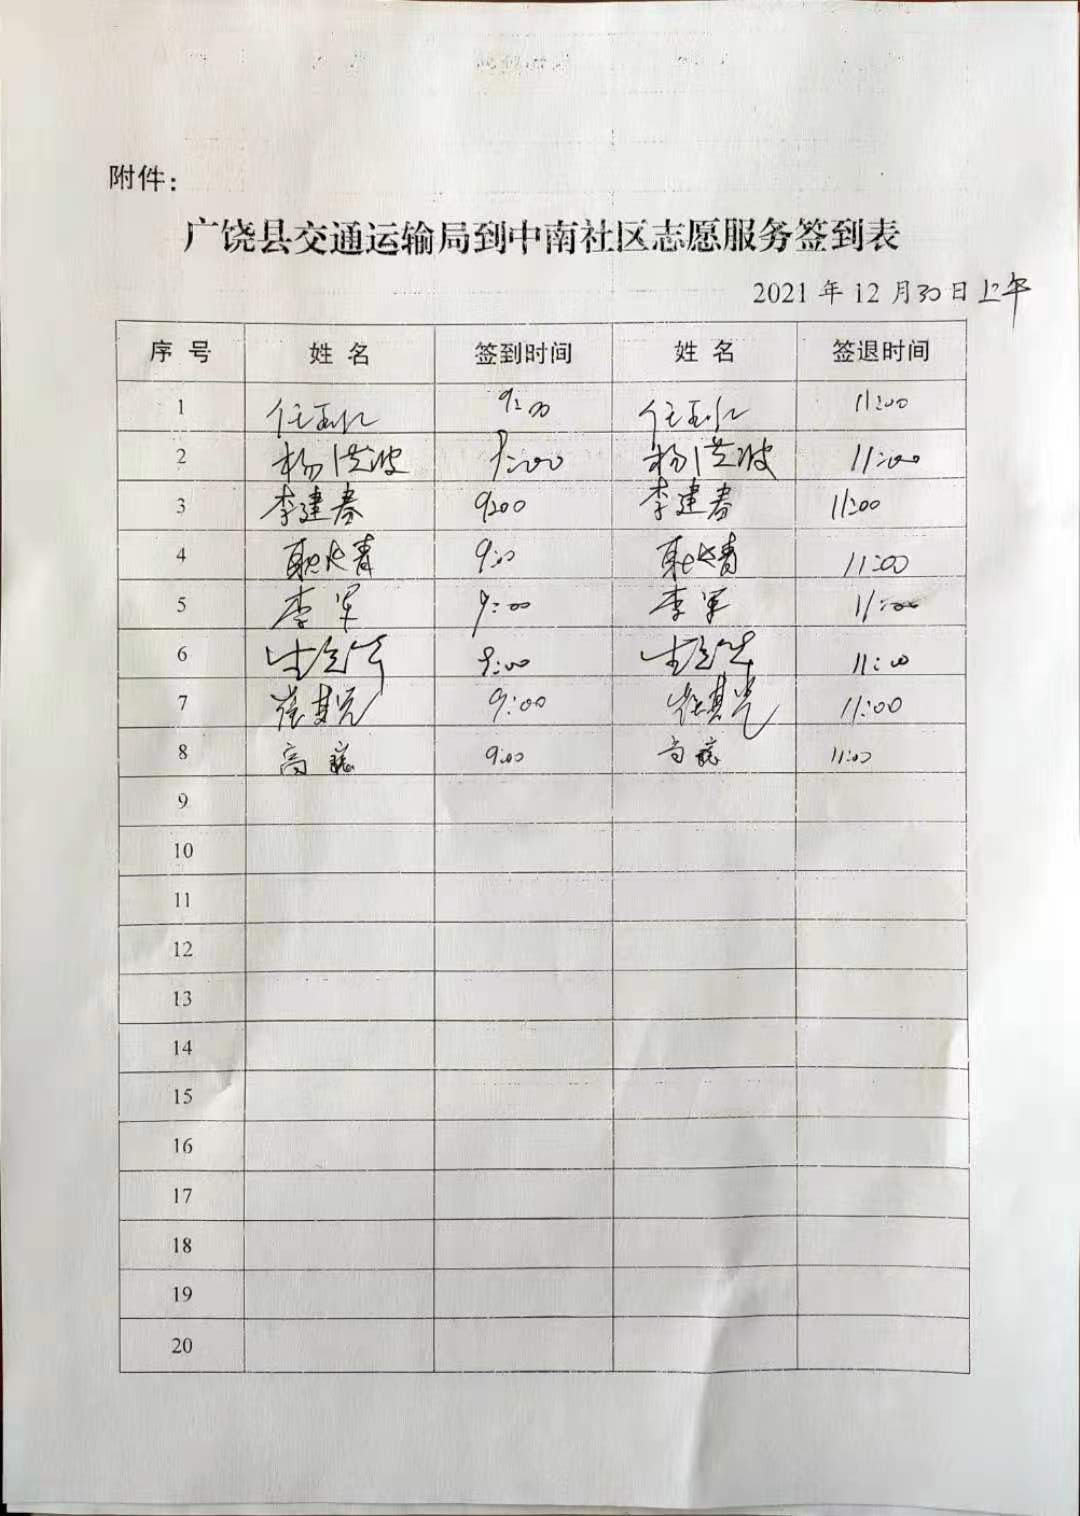 附件：
广饶县交通运输局到中南社区志愿服务签到表
2021 年 12 月 30 日 上午
序 号 姓 名 签到时间 姓 名 签退时间
1 9:00 11:00
2 杨洪波 9:00 杨洪波 11:00
3 李建春 9:00 李建春 11:00
4 9:00 11:00
5 李军 9:00 李军 11:00
6 9:00 11:00
7 崔其光 9:00 崔其光 11:00
8 高 9:00 高 11:00
9
10
11
12
13
14
15
16
17
18
19
20